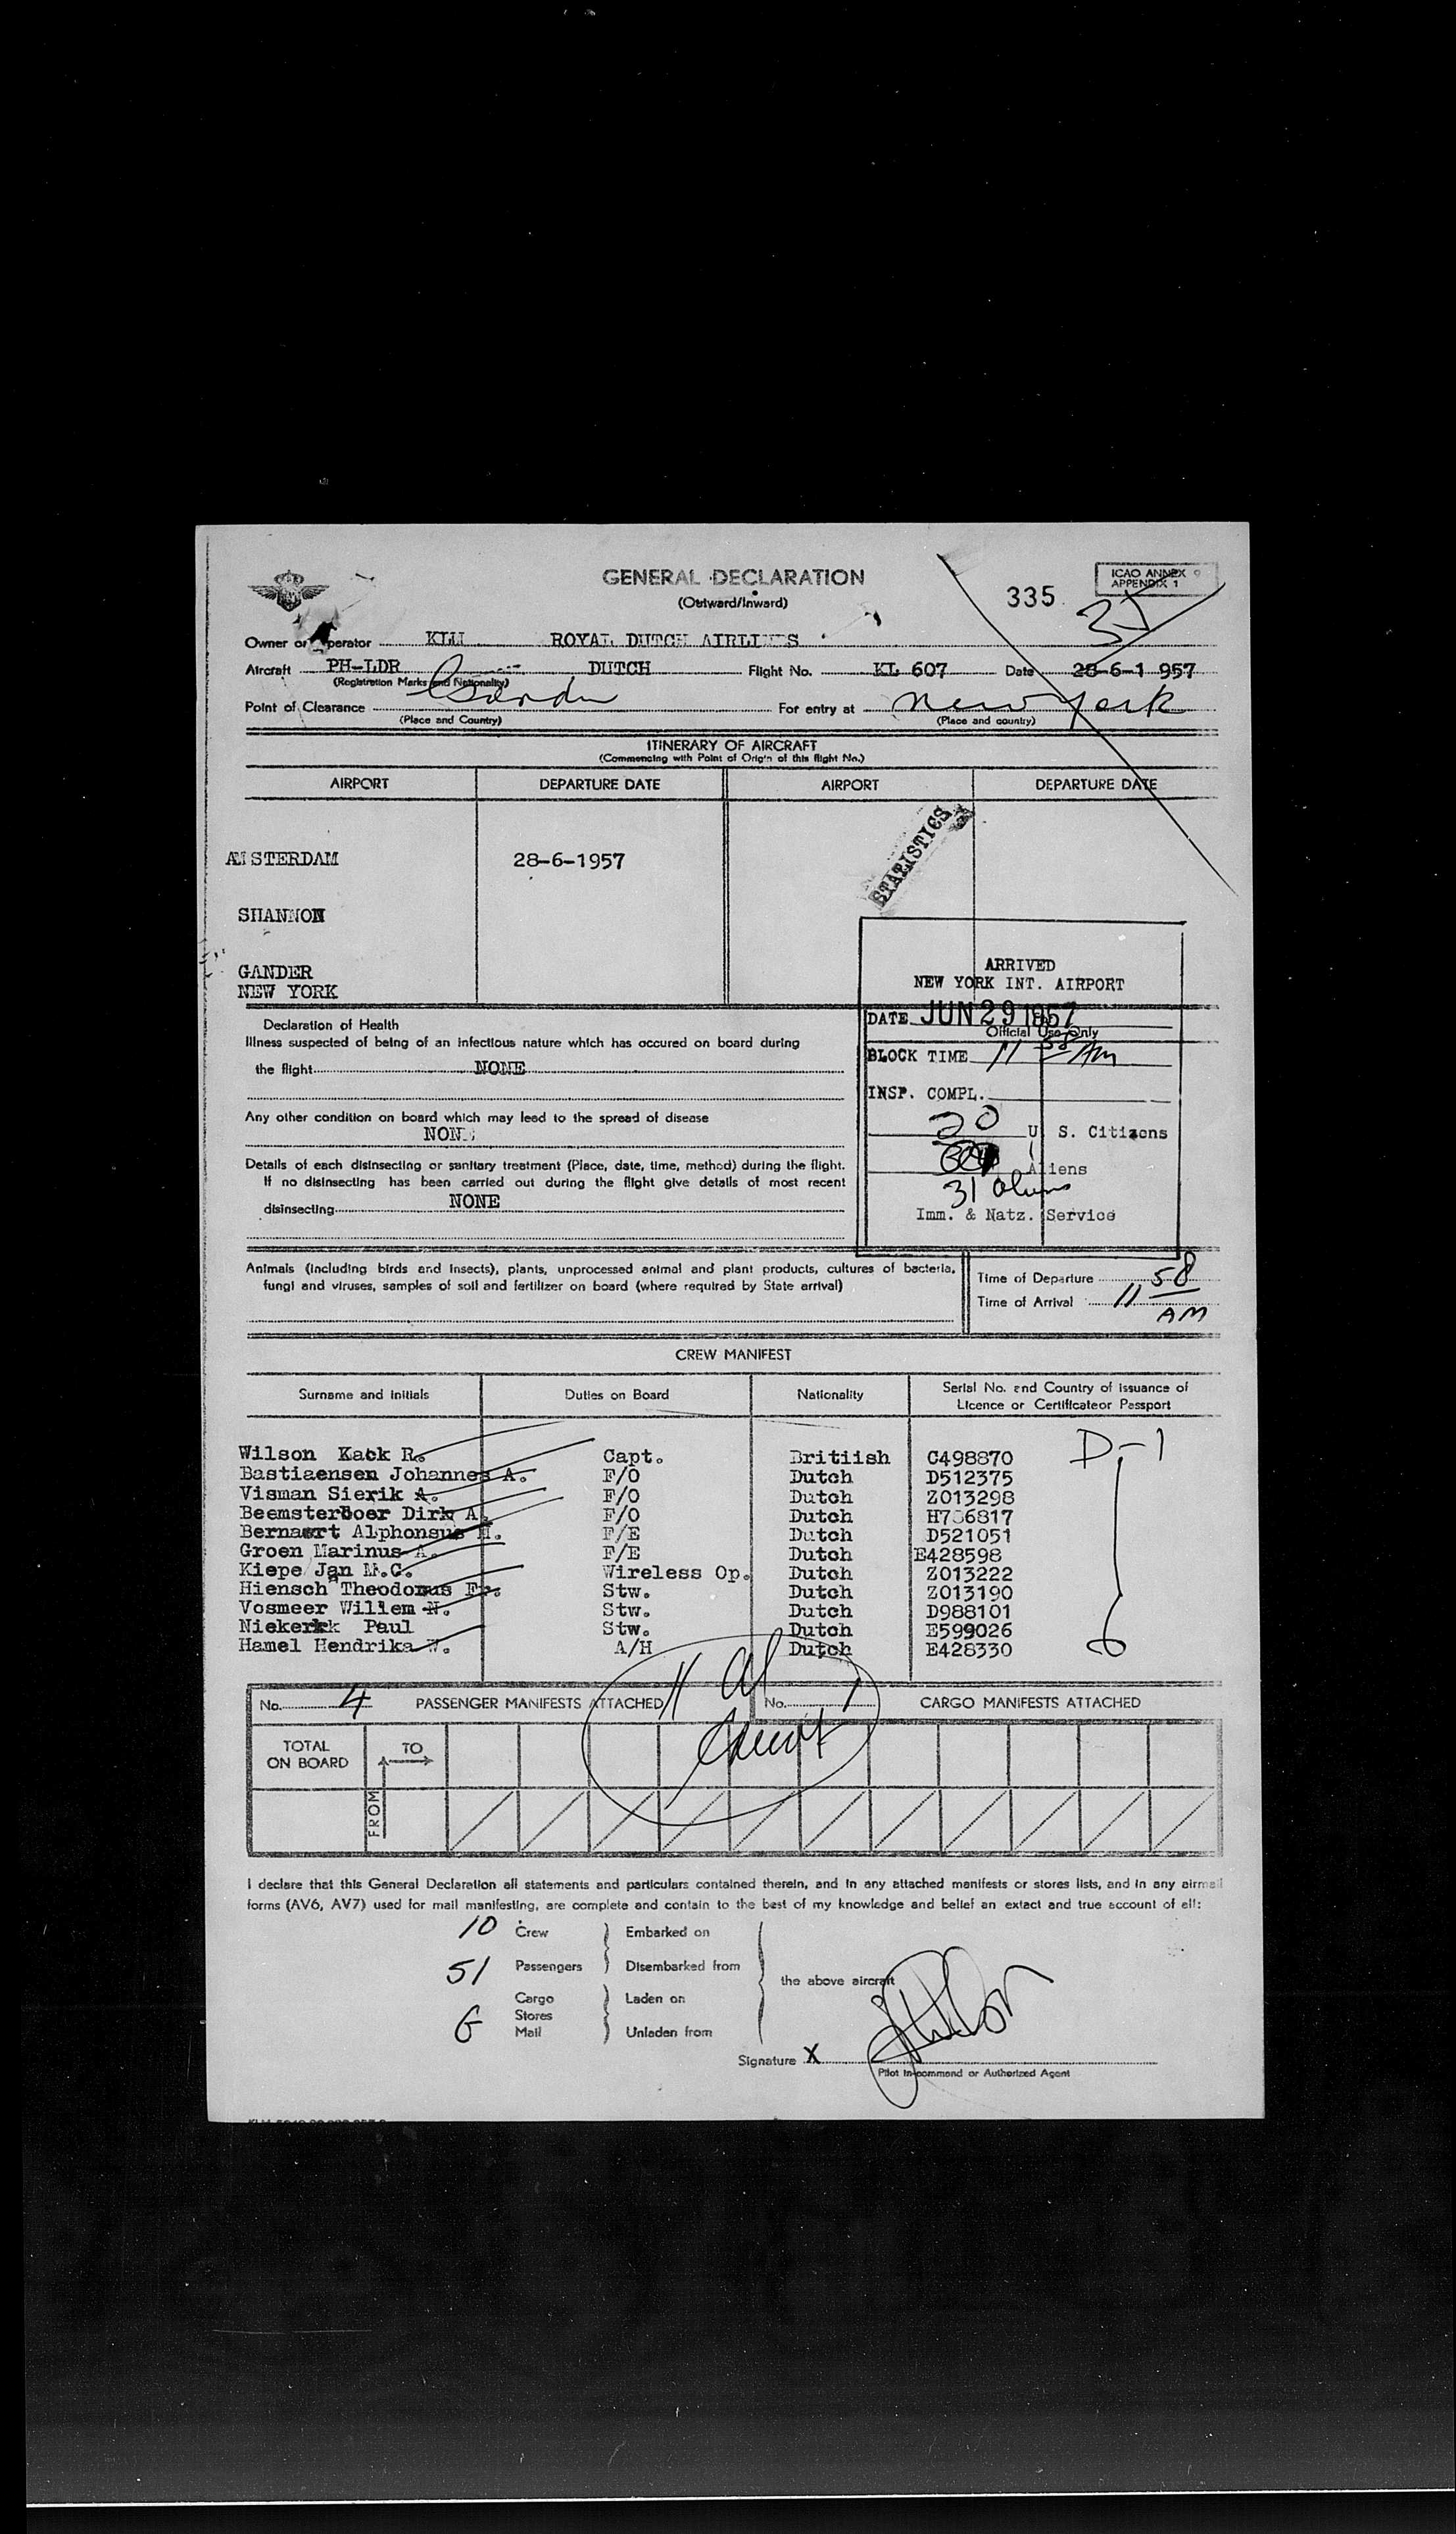 GENERAL DECLARATION
(Outward/Inward)
335
ICAO ANNEX 9
APPENDIX 1
Owner or Operator KLM ROYAL DUTCH AIRLINES
Aircraft PH-LDR DUTCH Flight No. KL 607 Date 28-6-1 957
(Registration Marks and Nationality)
Point of Clearance Gander For entry at New York
(Place and Country) (Place and country)
ITINERARY OF AIRCRAFT
(Commencing with Point of Origin of this flight No.)
AIRPORT DEPARTURE DATE AIRPORT DEPARTURE DATE
STATISTICS
AMSTERDAM 28-6-1957
SHANNON
GANDER
NEW YORK
ARRIVED
NEW YORK INT. AIRPORT
DATE JUN 29 1957
Official Use Only
BLOCK TIME 11 58 AM
INSP. COMPL.
20 U. S. Citizens
Aliens
31 aliens
Imm. & Natz. Service
Declaration of Health
Illness suspected of being of an infectious nature which has occured on board during
the flight NONE
Any other condition on board which may lead to the spread of disease
NONE
Details of each disinsecting or sanitary treatment (Place, date, time, method) during the flight.
If no disinsecting has been carried out during the flight give details of most recent
disinsecting NONE
Animals (including birds and insects), plants, unprocessed animal and plant products, cultures of bacteria,
fungi and viruses, samples of soil and fertilizer on board (where required by State arrival)
Time of Departure
Time of Arrival 11 58 AM
CREW MANIFEST
Surname and Initials Duties on Board Nationality Serial No. and Country of issuance of
Licence or Certificateor Passport
Wilson Kack R. Capt. Britiish C498870 D-1
Bastiaensen Johannes A. F/O Dutch D512375
Visman Sierik A. F/O Dutch Z013298
Beemsterboer Dirk A. F/O Dutch H786817
Bernaert Alphonsus H. F/E Dutch D521051
Groen Marinus A. F/E Dutch E428598
Kiepe Jan M.C. Wireless Op. Dutch Z013222
Hiensch Theodorus Fr. Stw. Dutch Z013190
Vosmeer Willem N. Stw. Dutch D988101
Niekerkk Paul Stw. Dutch E599026
Hamel Hendrika W. A/H Dutch E428330
No. 4 PASSENGER MANIFESTS ATTACHED No. 1 CARGO MANIFESTS ATTACHED
11 al
crew
TOTAL
ON BOARD
TO
FROM
I declare that this General Declaration all statements and particulars contained therein, and in any attached manifests or stores lists, and in any airmail
forms (AV6, AV7) used for mail manifesting, are complete and contain to the best of my knowledge and belief an extact and true account of all:
10 Crew Embarked on
51 Passengers Disembarked from
the above aircraft
Cargo Laden on
Stores
G Mail Unladen from
Signature X
Pilot in-command or Authorized Agent